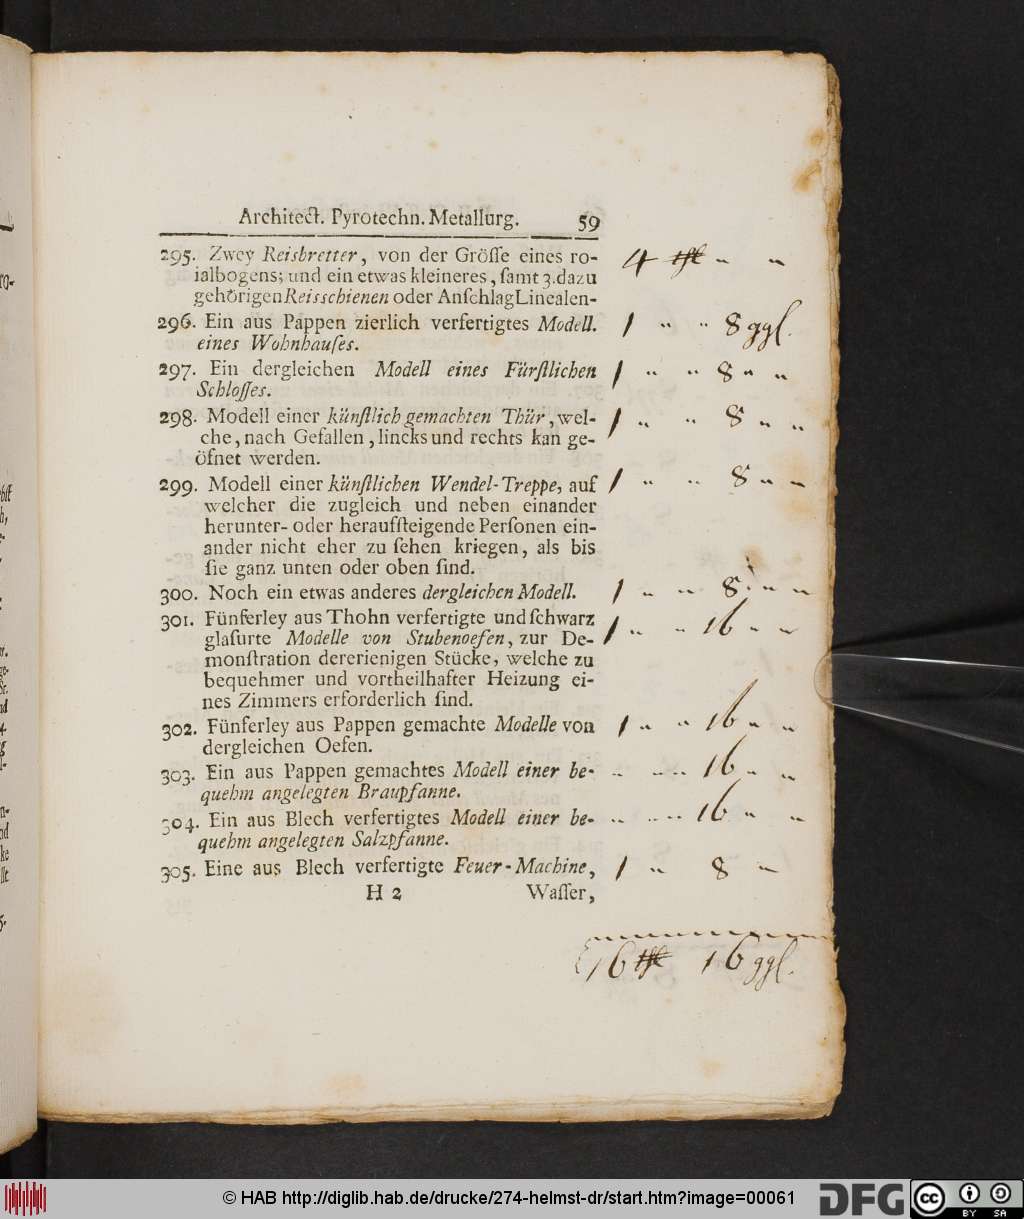 Architect. Pyrotechn. Metallurg. 59
295. Zwey Reisbretter, von der Gröſſe eines ro- 4 thl „ „
ialbogens; und ein etwas kleineres, ſamt 3. dazu
gehörigen Reisschienen oder AnſchlagLinealen-
296. Ein aus Pappen zierlich verfertigtes Modell. 1 „ „ 8 ggl.
eines Wohnhauſes.
297. Ein dergleichen Modell eines Fürſtlichen 1 „ „ 8 „ „
Schloſſes.
298. Modell einer künſtlich gemachten Thür, wel- 1 „ „ 8 „ „
che, nach Gefallen, lincks und rechts kan ge-
öfnet werden.
299. Modell einer künſtlichen Wendel-Treppe, auf 1 „ „ 8 „ „
welcher die zugleich und neben einander
herunter- oder herauffteigende Perſonen ein-
ander nicht eher zu ſehen kriegen, als bis
ſie ganz unten oder oben ſind.
300. Noch ein etwas anderes dergleichen Modell. 1 „ „ 8 „ „
301. Fünferley aus Thohn verfertigte und ſchwarz
glaſurte Modelle von Stubenoefen, zur De- 1 „ „ 16 „ „
monſtration dererienigen Stücke, welche zu
bequehmer und vortheilhafter Heizung ei-
nes Zimmers erforderlich ſind.
302. Fünferley aus Pappen gemachte Modelle von 1 „ „ 16 „ „
dergleichen Oefen.
303. Ein aus Pappen gemachtes Modell einer be- „ „ „ 16 „ „
quehm angelegten Braupfanne.
304. Ein aus Blech verfertigtes Modell einer be- „ „ „ 16 „ „
quehm angelegten Salzpfanne.
305. Eine aus Blech verfertigte Feuer-Machine, 1 „ 8 „
H 2 Waſſer,
16 thl 16 ggl.
© HAB http://diglib.hab.de/drucke/274-helmst-dr/start.htm?image=00061
DFG
cc BY SA